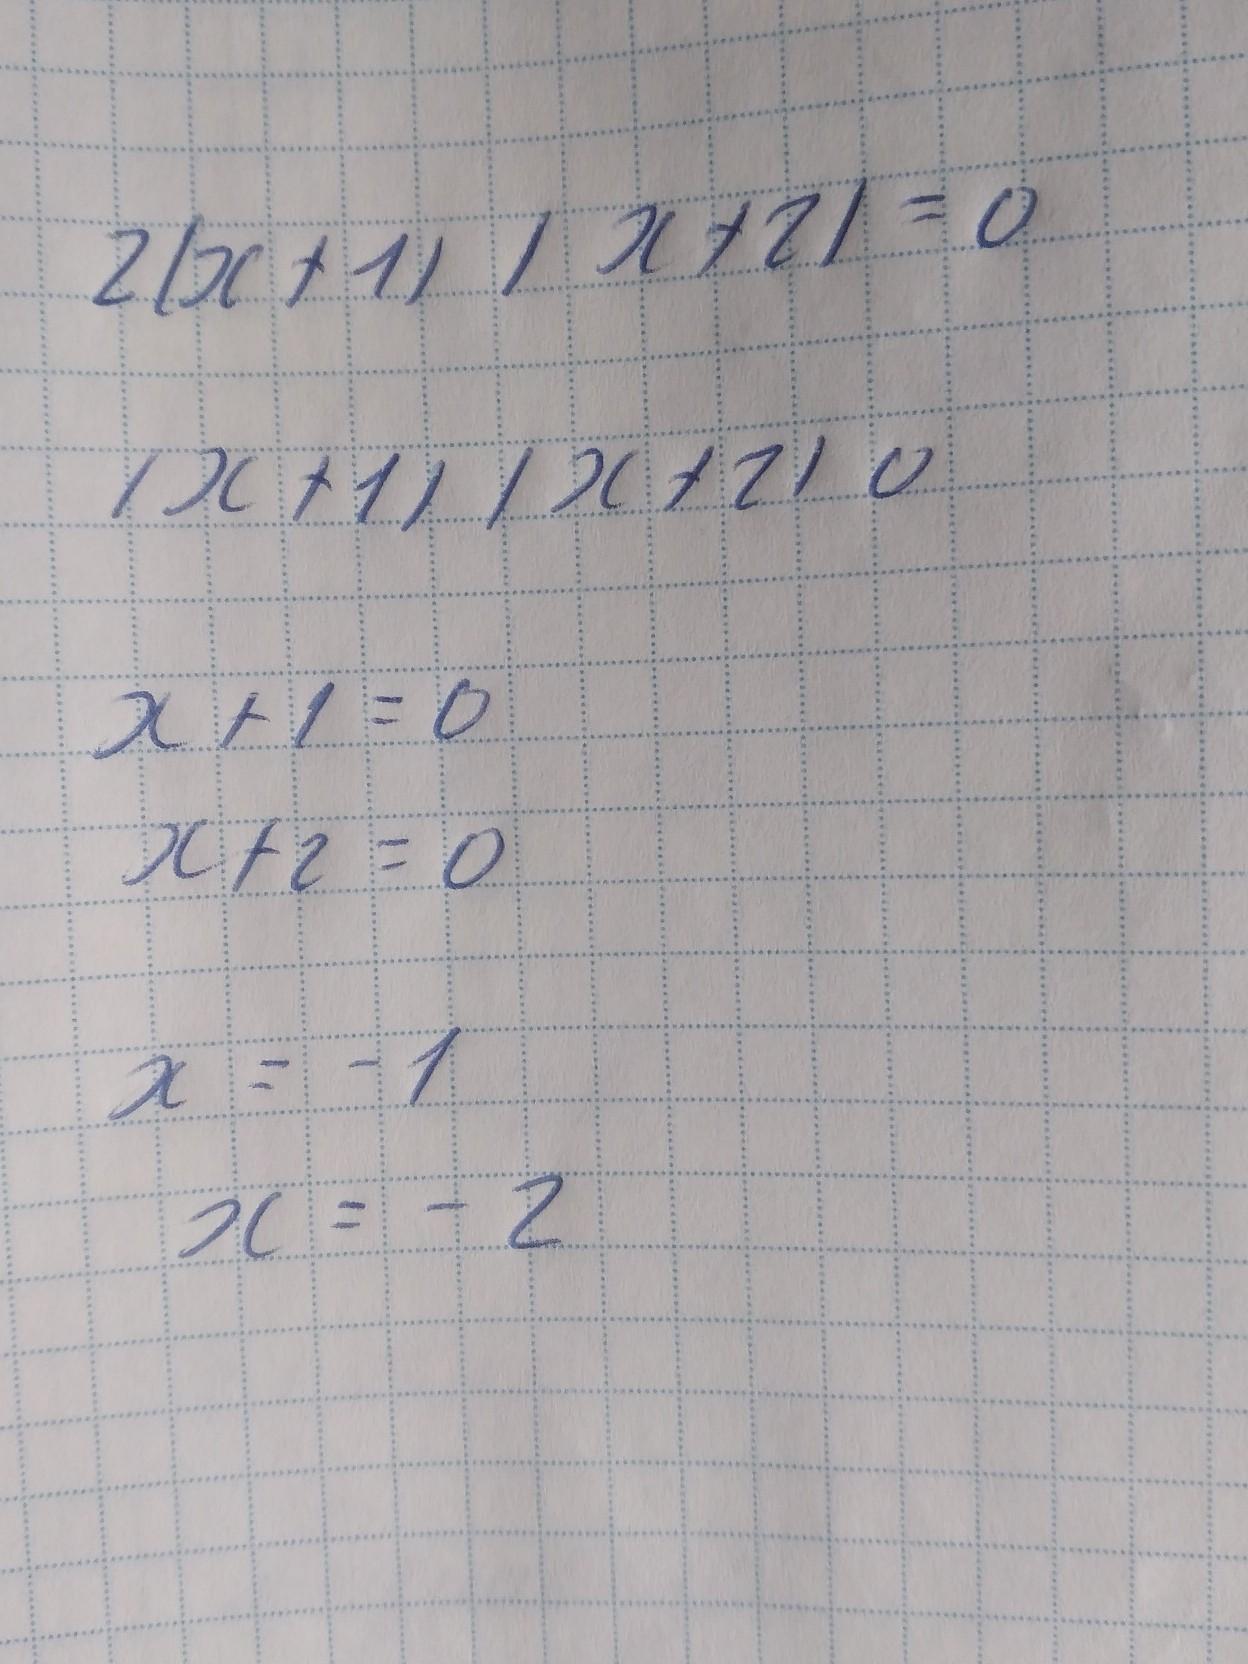 2(x+1)(x+2)=0
(x+1)(x+2) 0
x+1=0
x+2=0
x = -1
x = -2